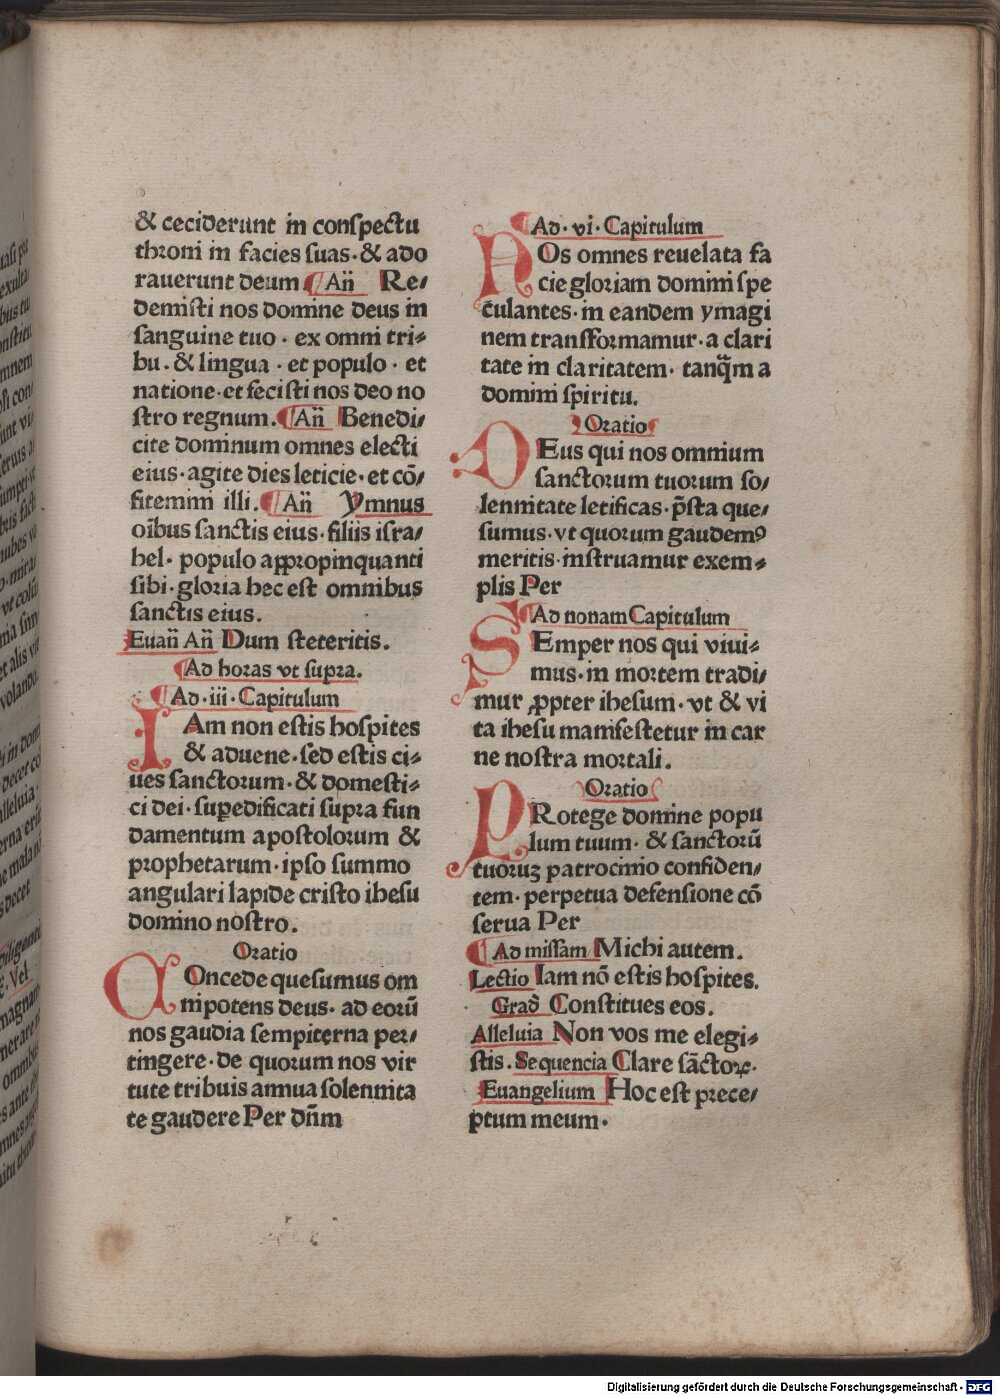 & ceciderunt in conspectu
throni in facies suas · & ado
rauerunt deum Añ Re⸗
demisti nos domine deus in
sanguine tuo · ex omni tri⸗
bu . & lingua · et populo · et
natione · et fecisti nos deo no
stro regnum. Añ Benedi⸗
cite dominum omnes electi
eius · agite dies leticie · et cō⸗
fitemini illi. Añ Ymnus
oībus sanctis eius · filiis isra⸗
hel · populo appropinquanti
sibi · gloria hec est omnibus
sanctis eius.
Euañ Añ Dum steteritis.
Ad horas vt supra.
Ad · iii · Capitulum
IAm non estis hospites
& aduene · sed estis ci⸗
ues sanctorum · & domesti⸗
ci dei · suꝑedificati supra fun
damentum apostolorum &
prophetarum · ipso summo
angulari lapide cristo ihesu
domino nostro .
Oratio
COncede quesumus om
nipotens deus · ad eorū
nos gaudia sempiterna per⸗
tingere · de quorum nos vir
tute tribuis annua solennita
te gaudere Per dñm
Ad · vi · Capitulum
NOs omnes reuelata fa
cie gloriam domini spe
culantes · in eandem ymagi
nem transformamur · a clari
tate in claritatem · tanq̃m a
domini spiritu.
Oratio
DEus qui nos omnium
sanctorum tuorum so⸗
lennitate letificas · p̄sta que⸗
sumus · vt quorum gaudemꝰ
meritis · instruamur exem⸗
plis Per
Ad nonam Capitulum
SEmper nos qui viui⸗
mus · in mortem tradi⸗
mur ꝓpter ihesum · vt & vi
ta ihesu manifestetur in car
ne nostra mortali .
Oratio
PRotege domine popu
lum tuum · & sanctorū
tuoruꝫ patrocinio confiden⸗
tem · perpetua defensione cō
serua Per
Ad missam Michi autem.
Lectio Iam nō estis hospites.
Grad̄ Constitues eos .
Alleluia Non vos me elegi⸗
stis . Sequencia Clare sāctoꝝ ·
Euangelium Hoc est prece⸗
ptum meum ·
Digitalisierung gefördert durch die Deutsche Forschungsgemeinschaft - DFG